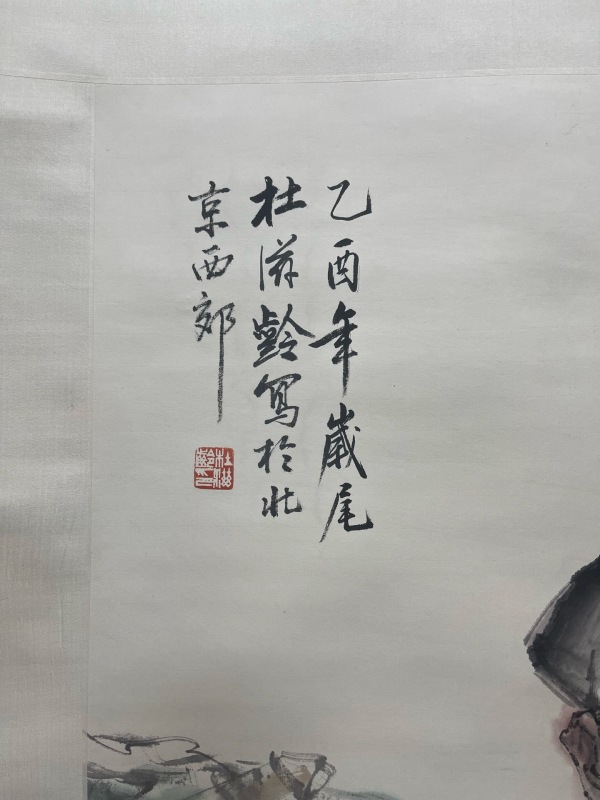 乙酉年歲尾
杜滋齡寫於北
京西郊
杜滋齡印